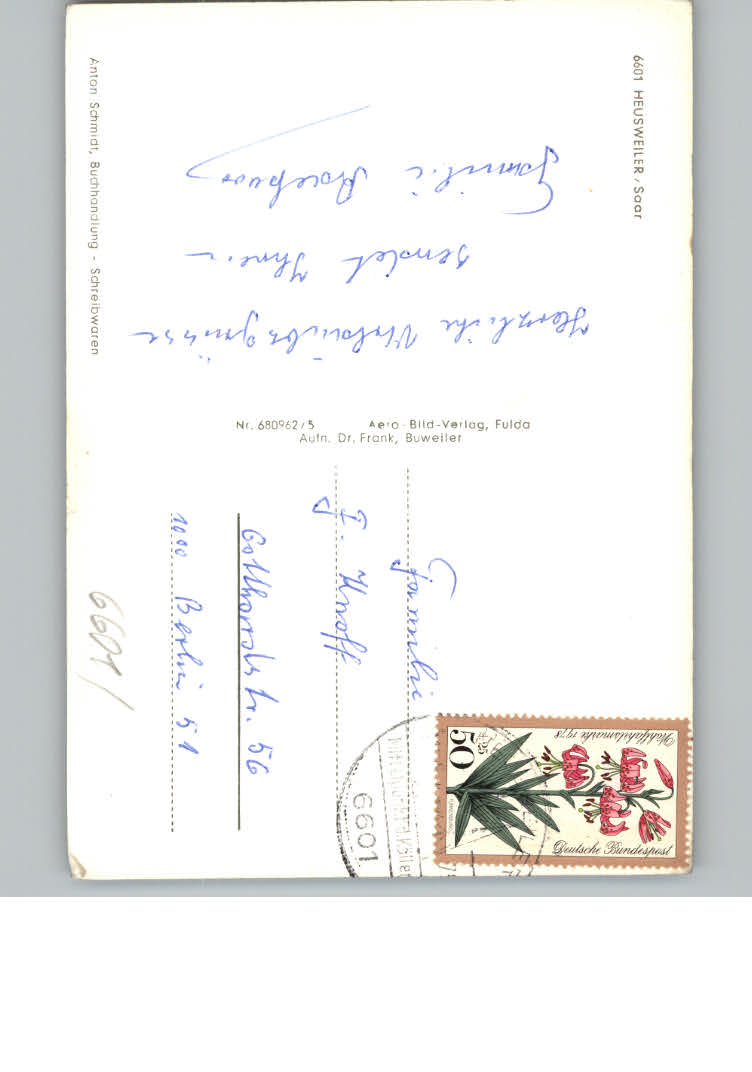 6601 HEUSWEILER / Saar
Herzliche Urlaubsgrüsse
sendet Ihnen
Familie
Anton Schmidt, Buchhandlung - Schreibwaren
Nr. 680962/5 Aero-Bild-Verlag, Fulda
Aufn. Dr. Frank, Buweiler
Familie
F. Knoff
Gotthardstr. 56
1000 Berlin 51
6601/
Deutsche Bundespost
Wohlfahrtsmarke 1978
50
+25
6601